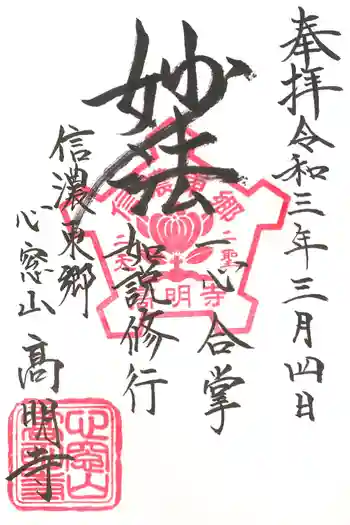 奉拝令和三年三月四日
妙法
一心合掌
如説修行
信濃東郷
心窓山
高明寺
信濃東郷
二天
二聖
高明寺
心窓山